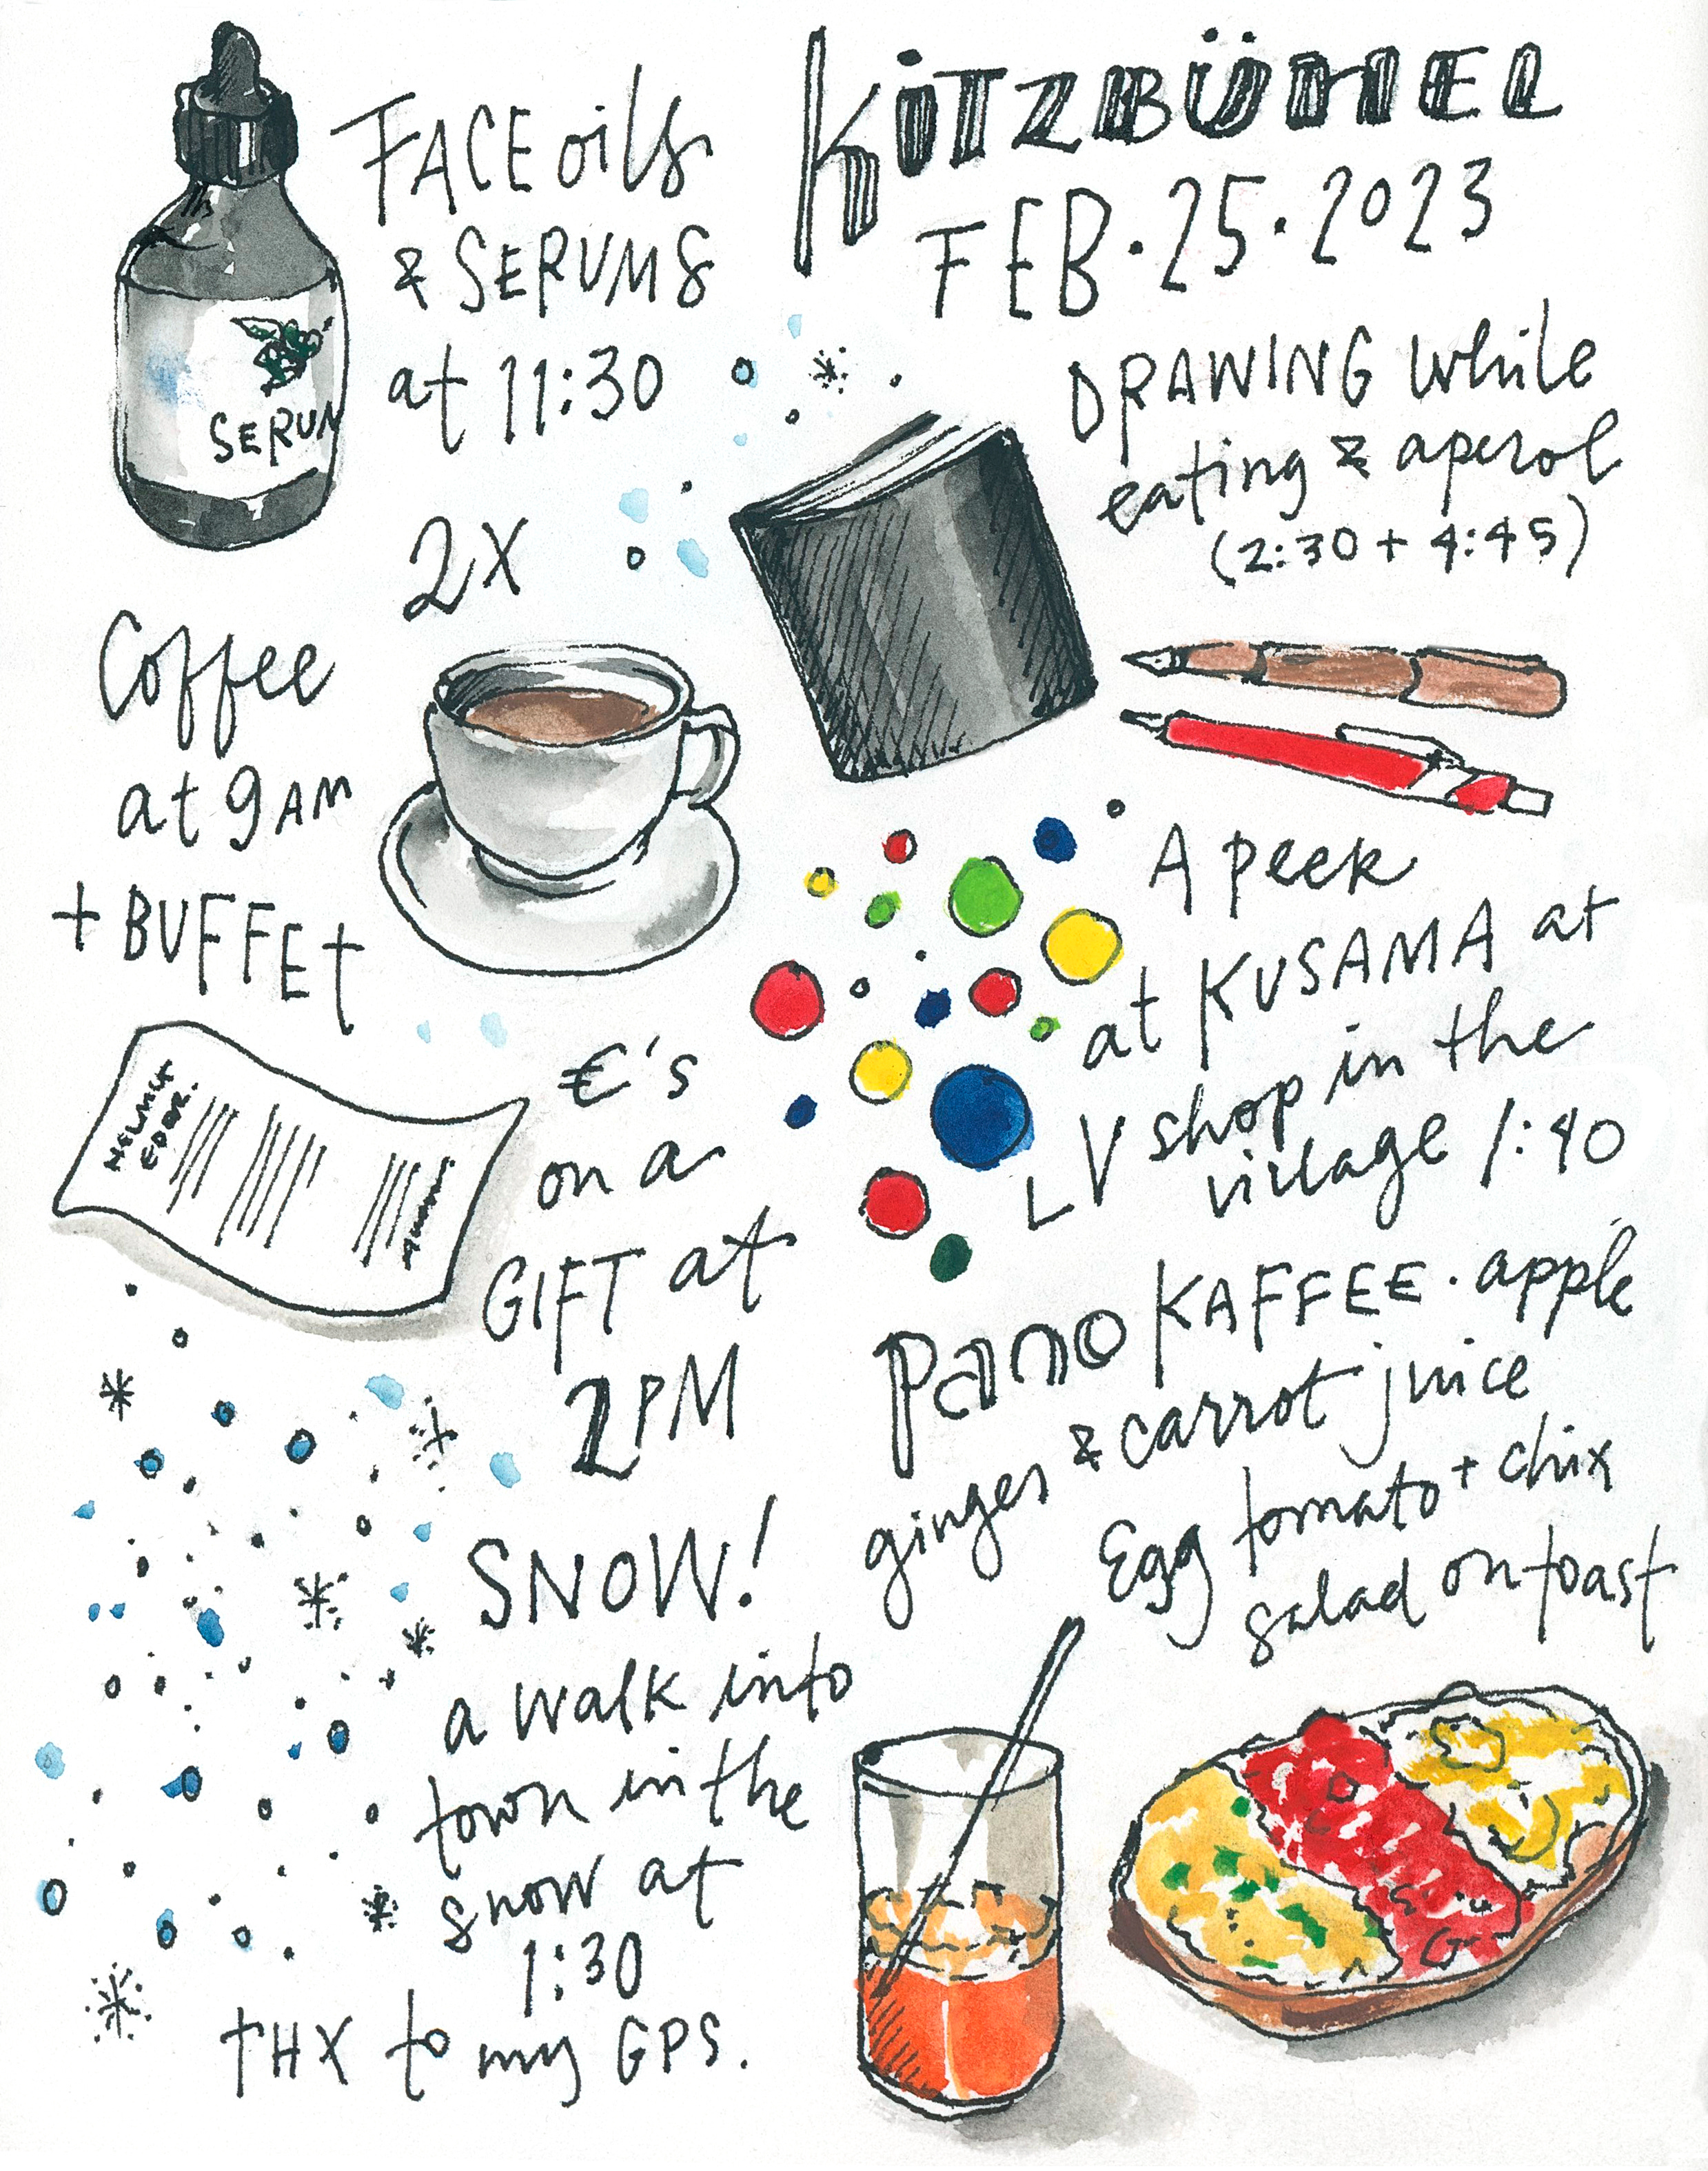 KiTZBÜHEL
FEB·25·2023
FACE oils
& SERUMS
at 11:30
SERUM
DRAWING while
eating & aperol
(2:30 + 4:45)
2X
Coffee
at 9AM
+ BUFFEt
A peek
at KUSAMA at
LV shop in the
village 1:40
€'s
on a
GIFT at
2PM
Pano KAFFEE · apple
ginger & carrot juice
Egg tomato + chix
salad on toast
SNOW!
a walk into
town in the
snow at
1:30
tHX to my GPS.